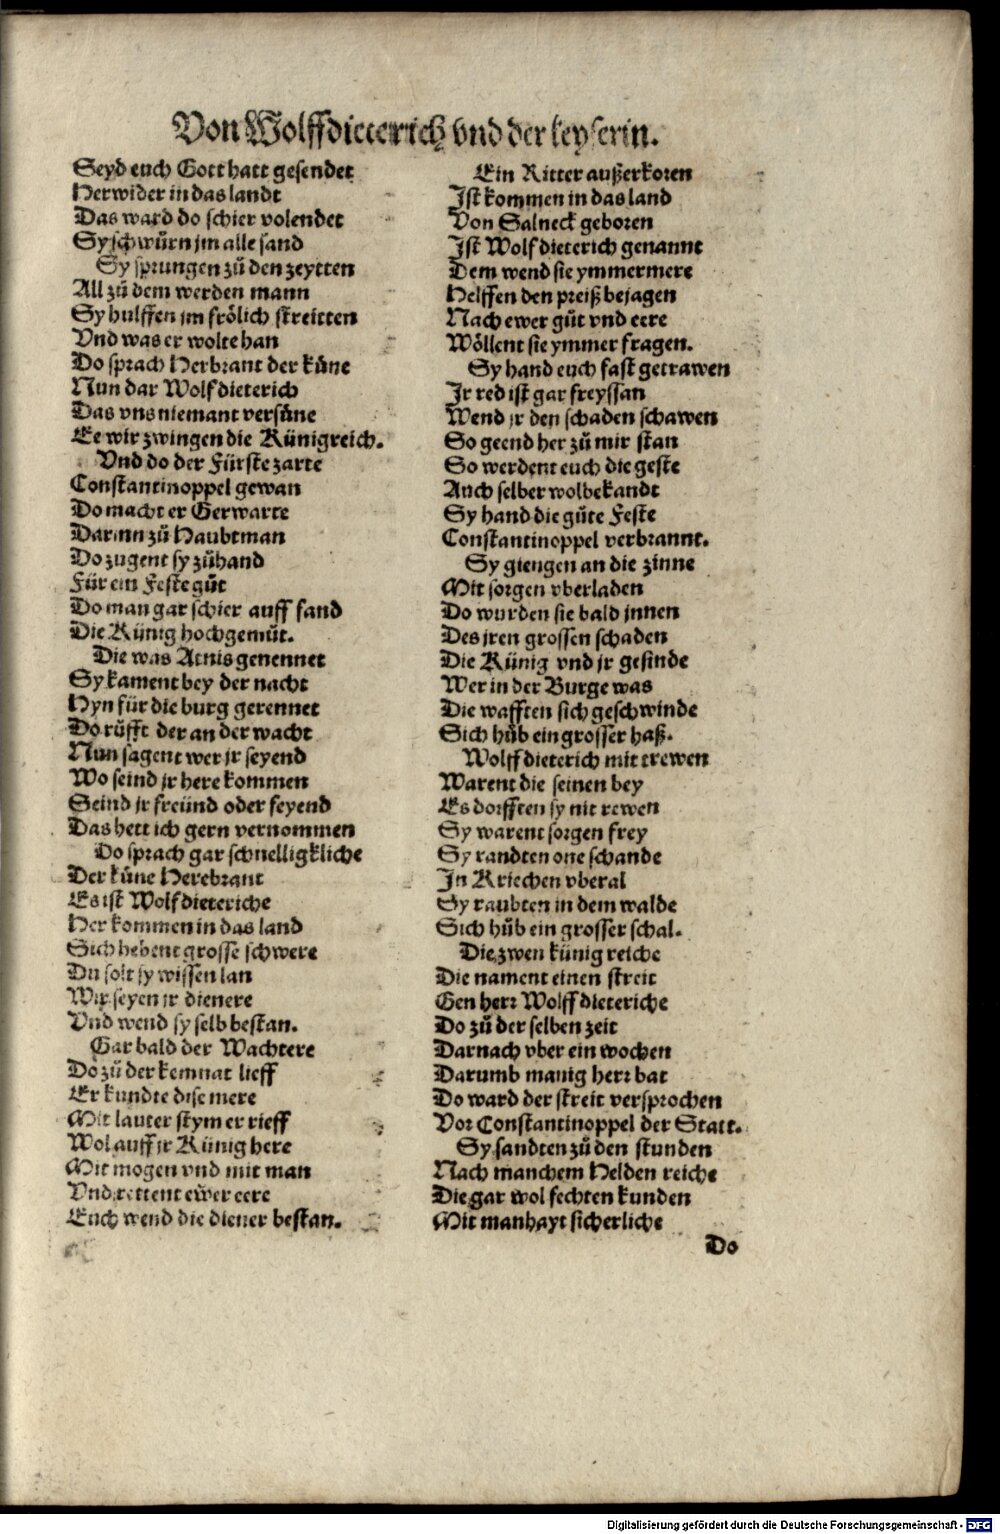 Von Wolffdieterich vnd der keyserin.
Seyd euch Gott hatt gesendet
Herwider in das landt
Das ward do schier volendet
Sy schwůrn jm alle sand
Sy sprungen zů den zeytten
All zů dem werden mann
Sy hulffen jm frölich streitten
Vnd was er wolte han
Do sprach Herbrant der küne
Nun dar Wolfdieterich
Das vns niemant versüne
Ee wir zwingen die Künigreich.
Vnd do der Fürste zarte
Constantinoppel gewan
Do macht er Gerwarte
Darinn zů Haubtman
Do zugent sy zůhand
Für ein Feste gůt
Do man gar schier auff fand
Die Künig hochgemůt.
Die was Atnis genennet
Sy kament bey der nacht
Hyn für die burg gerennet
Do růfft der an der wacht
Nun sagent wer jr seyend
Wo seind jr here kommen
Seind jr freünd oder feyend
Das hett ich gern vernommen
Do sprach gar schnelligkliche
Der küne Herebrant
Es ist Wolfdieteriche
Her kommen in das land
Sich hebent grosse schwere
Du solt sy wissen lan
Wir seyen jr dienere
Vnd wend sy selb bestan.
Gar bald der Wachtere
Do zů der kemnat lieff
Er kundte dise mere
Mit lauter stym er rieff
Wol auff jr Künig here
Mit mogen vnd mit man
Vnd rettent ewer eere
Euch wend die diener bestan.
Ein Ritter außerkoren
Ist kommen in das land
Von Salneck geboren
Ist Wolfdieterich genannt
Dem wend sie ymmermere
Helffen den preiß bejagen
Nach ewer gůt vnd eere
Wöllent sie ymmer fragen.
Sy hand euch fast getrawen
Jr red ist gar freyssan
Wend jr den schaden schawen
So geend her zů mir stan
So werdent euch die geste
Auch selber wolbekandt
Sy hand die gůte Feste
Constantinoppel verbrannt.
Sy giengen an die zinne
Mit sorgen vberladen
Do wurden sie bald jnnen
Des jren grossen schaden
Die Künig vnd jr gesinde
Wer in der Burge was
Die wafften sich geschwinde
Sich hůb ein grosser haß.
Wolffdieterich mit trewen
Warent die seinen bey
Es dorfften sy nit rewen
Sy warent sorgen frey
Sy randten one schande
In Kriechen vberal
Sy raubten in dem walde
Sich hůb ein grosser schal.
Die zwen künig reiche
Die nament einen streit
Gen herr Wolffdieteriche
Do zů der selben zeit
Darnach vber ein wochen
Darumb manig herr bat
Do ward der streit versprochen
Vor Constantinoppel der Statt.
Sy sandten zů den stunden
Nach manchem Helden reiche
Die gar wol fechten kunden
Mit manhayt sicherliche
Do
Digitalisierung gefördert durch die Deutsche Forschungsgemeinschaft - DFG